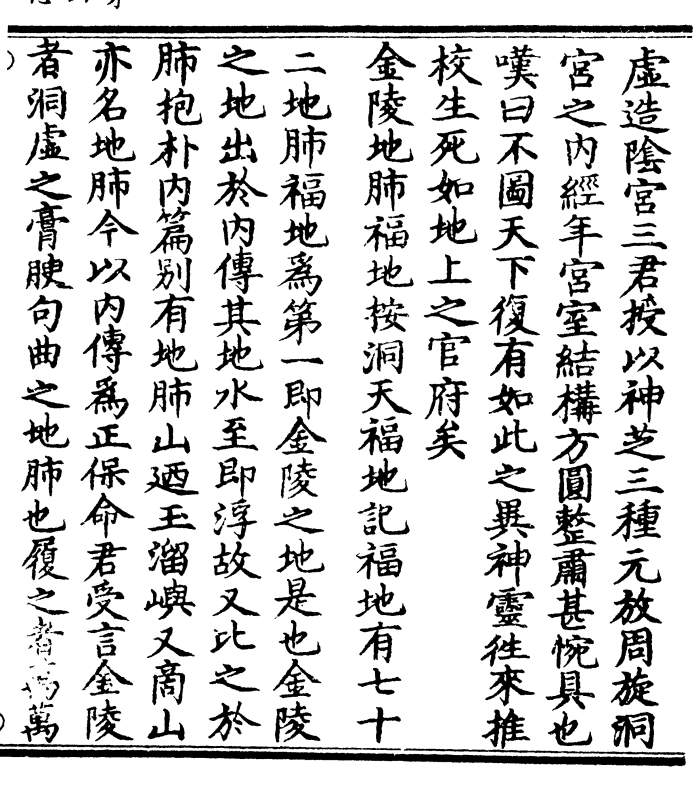 虛造陰宮三君授以神芝三種元放周旋洞
宮之內經年宮室結構方圓整肅甚惋具也
嘆曰不圖天下復有如此之異神靈徃來推
校生死如地上之官府矣
金陵地肺福地按洞天福地記福地有七十
二地肺福地爲第一即金陵之地是也金陵
之地出於內傳其地水至即浮故又比之於
肺抱朴內篇别有地肺山廼玉溜嶼又啇山
亦名地肺今以內傳爲正保命君受言金陵
者洞虛之膏腴句曲之地肺也履之者萬萬